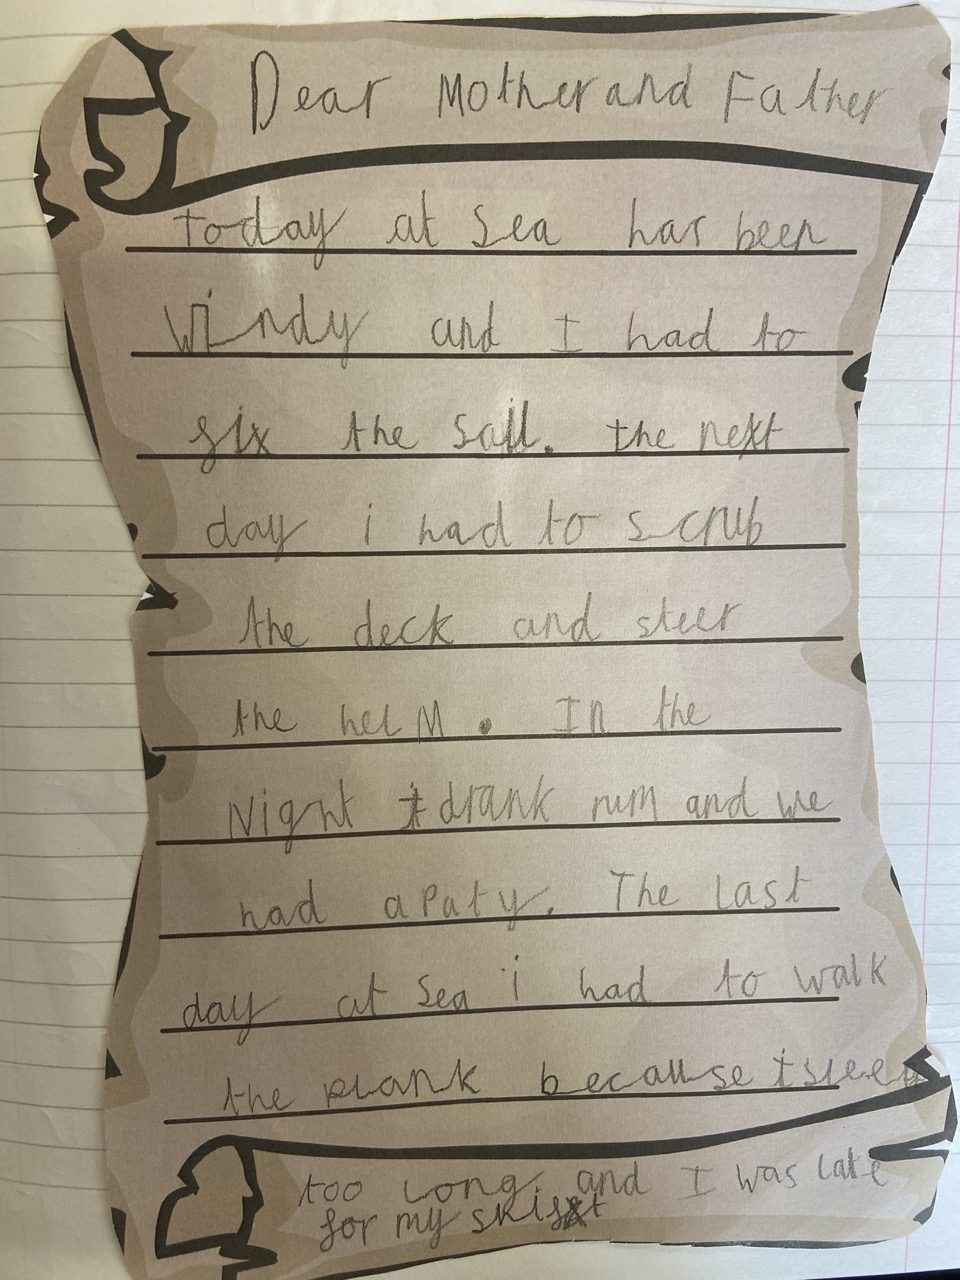 Dear Mother and Father
today at Sea has been
windy and I had to
fix the Sail. the next
day i had to scrub
the deck and steer
the helM. In the
Night I drank rum and we
had a Paty. The Last
day at Sea i had to walk
the plank because I sleep
too Long and I was Late
for my